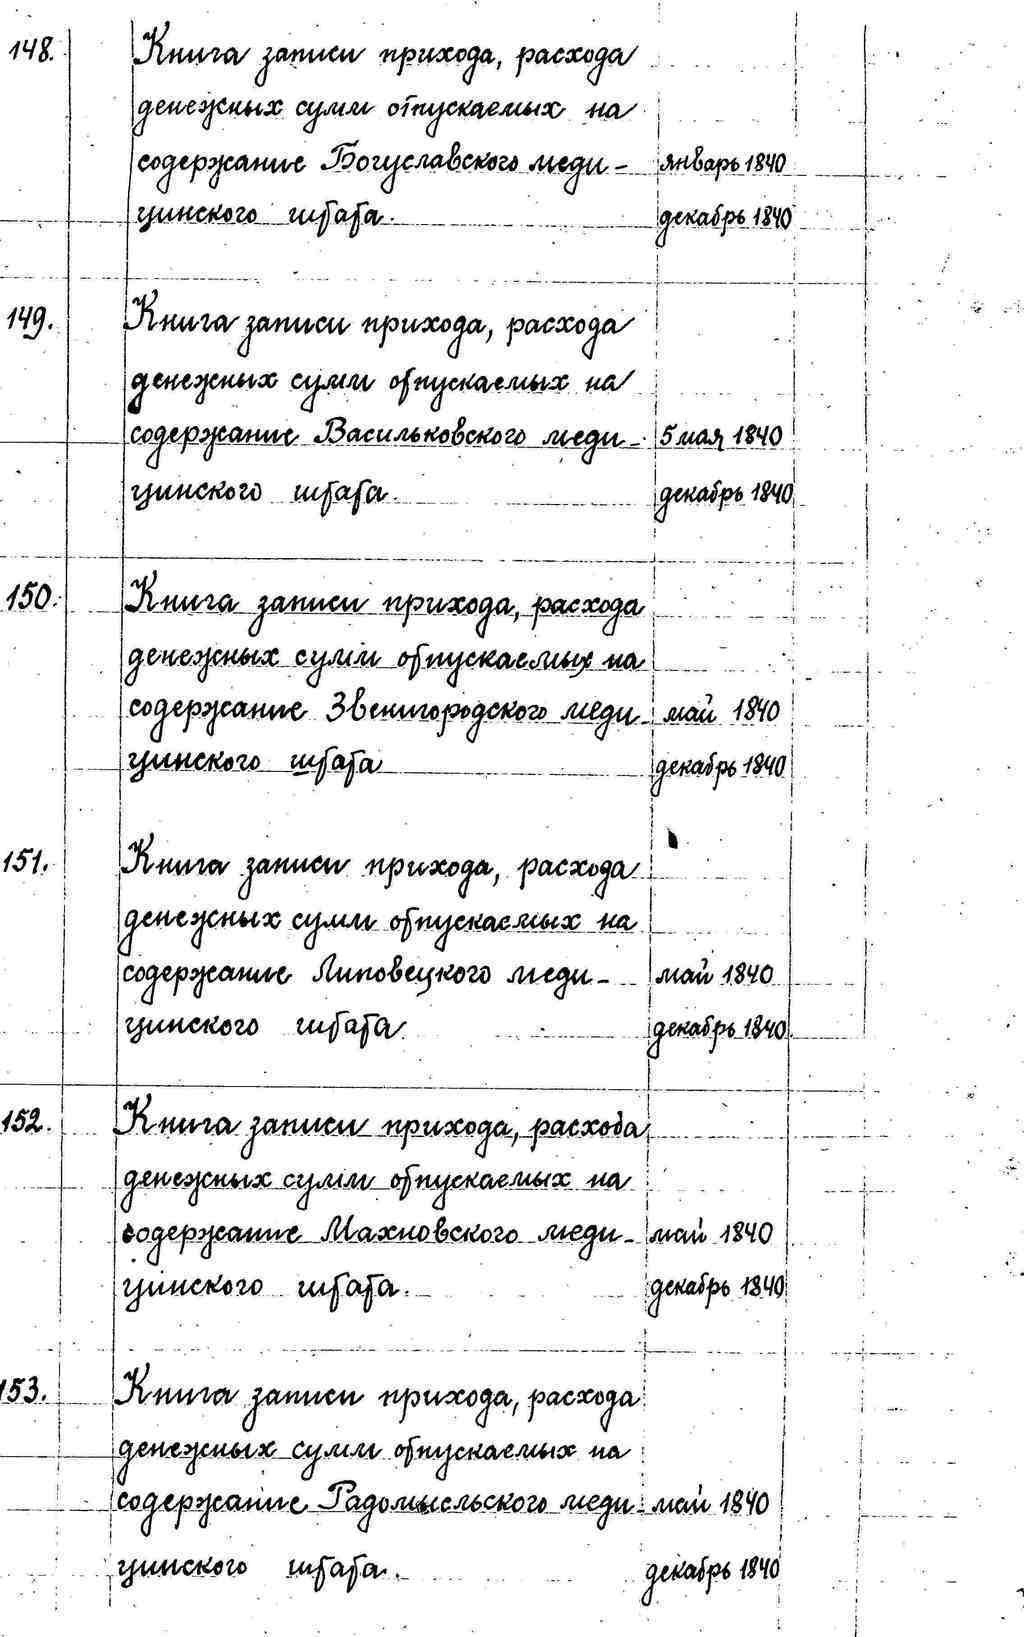 148. Книга записи прихода, расхода
денежных сумм отпускаемых на
содержание Богуславского меди- январь 1840
цинского штата. декабрь 1840
149. Книга записи прихода, расхода
денежных сумм отпускаемых на
содержание Васильковского меди- 5 мая 1840
цинского штата. декабрь 1840
150. Книга записи прихода, расхода
денежных сумм отпускаемых на
содержание Звенигородского меди- май 1840
цинского штата декабрь 1840
151. Книга записи прихода, расхода
денежных сумм отпускаемых на
содержание Липовецкого меди- май 1840
цинского штата. декабрь 1840
152. Книга записи прихода, расхода
денежных сумм отпускаемых на
содержание Махновского меди- май 1840
цинского штата. декабрь 1840
153. Книга записи прихода, расхода
денежных сумм отпускаемых на
содержание Радомысльского меди- май 1840
цинского штата. декабрь 1840